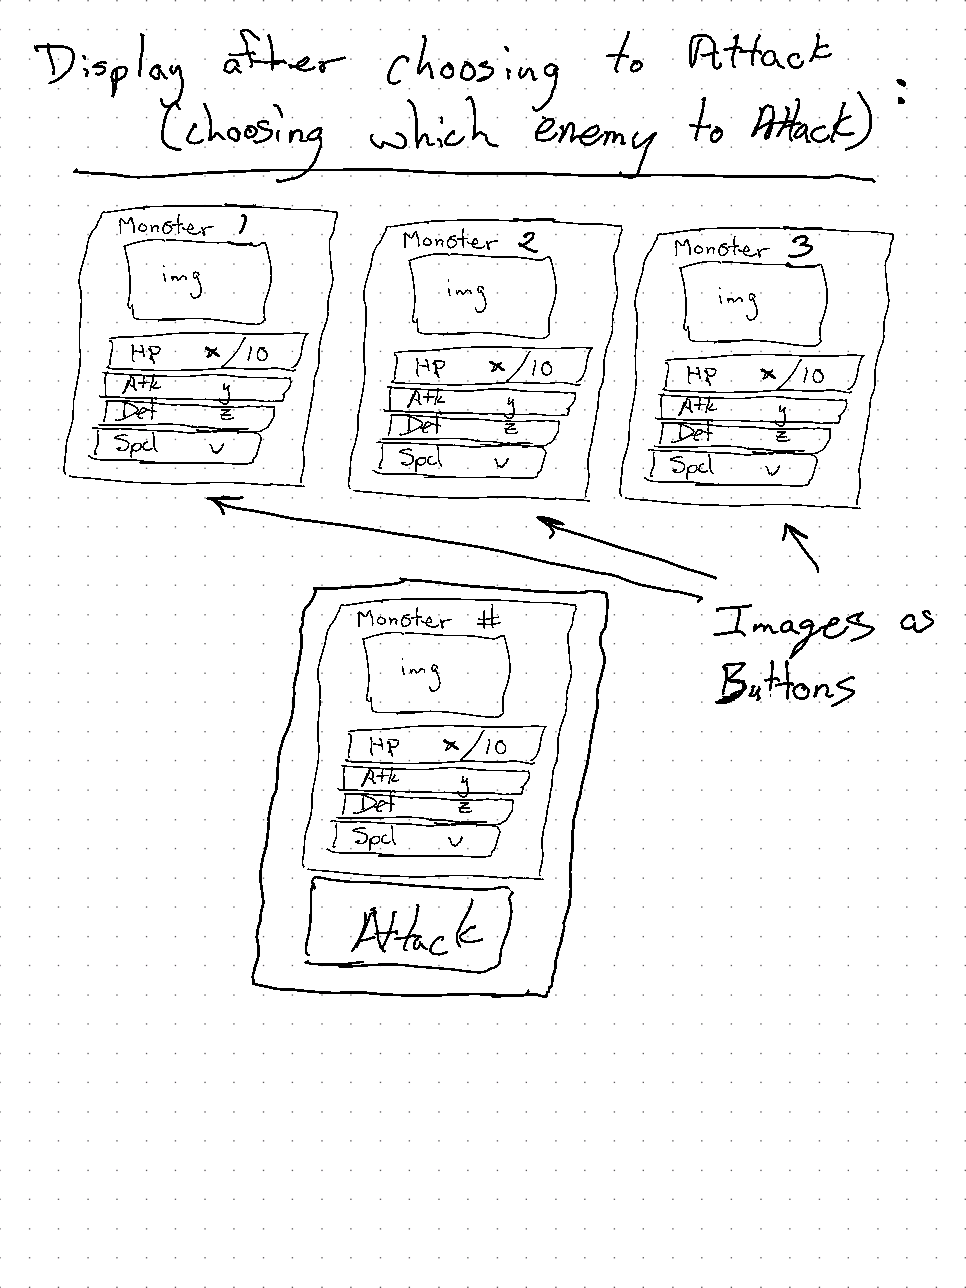 Display after choosing to Attack
(choosing which enemy to Attack) :
Monster 1
img
HP x/10
Atk y
Def z
Spcl v
Monster 2
img
HP x/10
Atk y
Def z
Spcl v
Monster 3
img
HP x/10
Atk y
Def z
Spcl v
Images as
Buttons
Monster #
img
HP x/10
Atk y
Def z
Spcl v
Attack